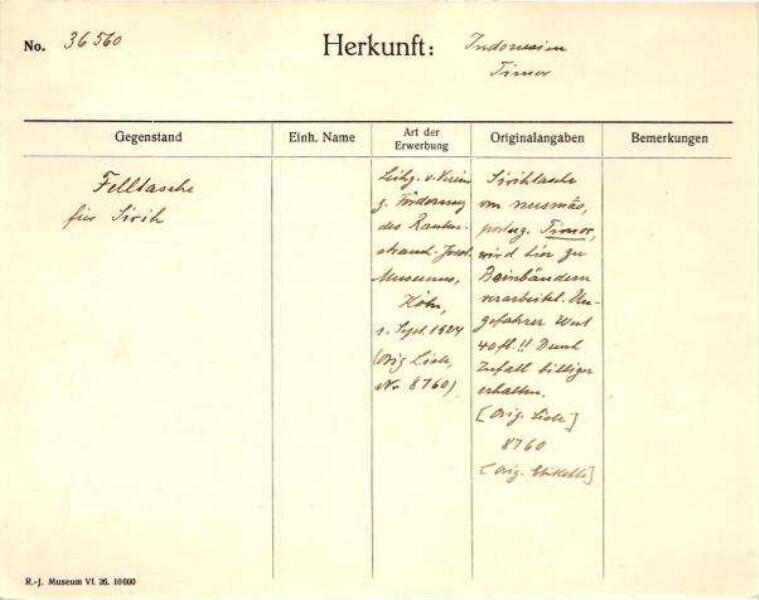 No. 36560
Herkunft: Indonesien
Timor
Gegenstand
Einh. Name
Art der
Erwerbung
Originalangaben
Bemerkungen
Felltasche
für Sirih
Leihg. v. Verein
z. Förderung
des Rauten-
strauch-Joest
Museums,
Köln,
1. Sept. 1924
(Orig Liste,
No. 8760)
Sirihtasche
portug. Timor,
wird hier zu
Beinbändern
verarbeitet. Un-
gefährer Wert
40 fl.!! Durch
Zufall billiger
erhalten.
[Orig. Liste]
8760
[Orig. Etikette]
R.-J. Museum VI. 26. 10000